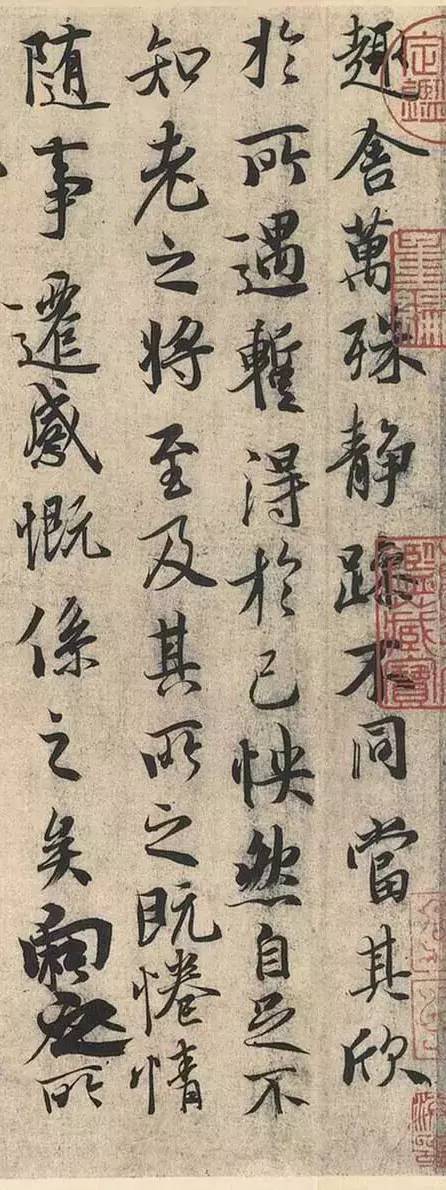 趣舍萬殊静躁不同當其欣
於所遇蹔得於己怏然自足不
知老之將至及其所之既惓情
随事遷感慨係之矣向之所
定鑑
重編
鑒藏寶